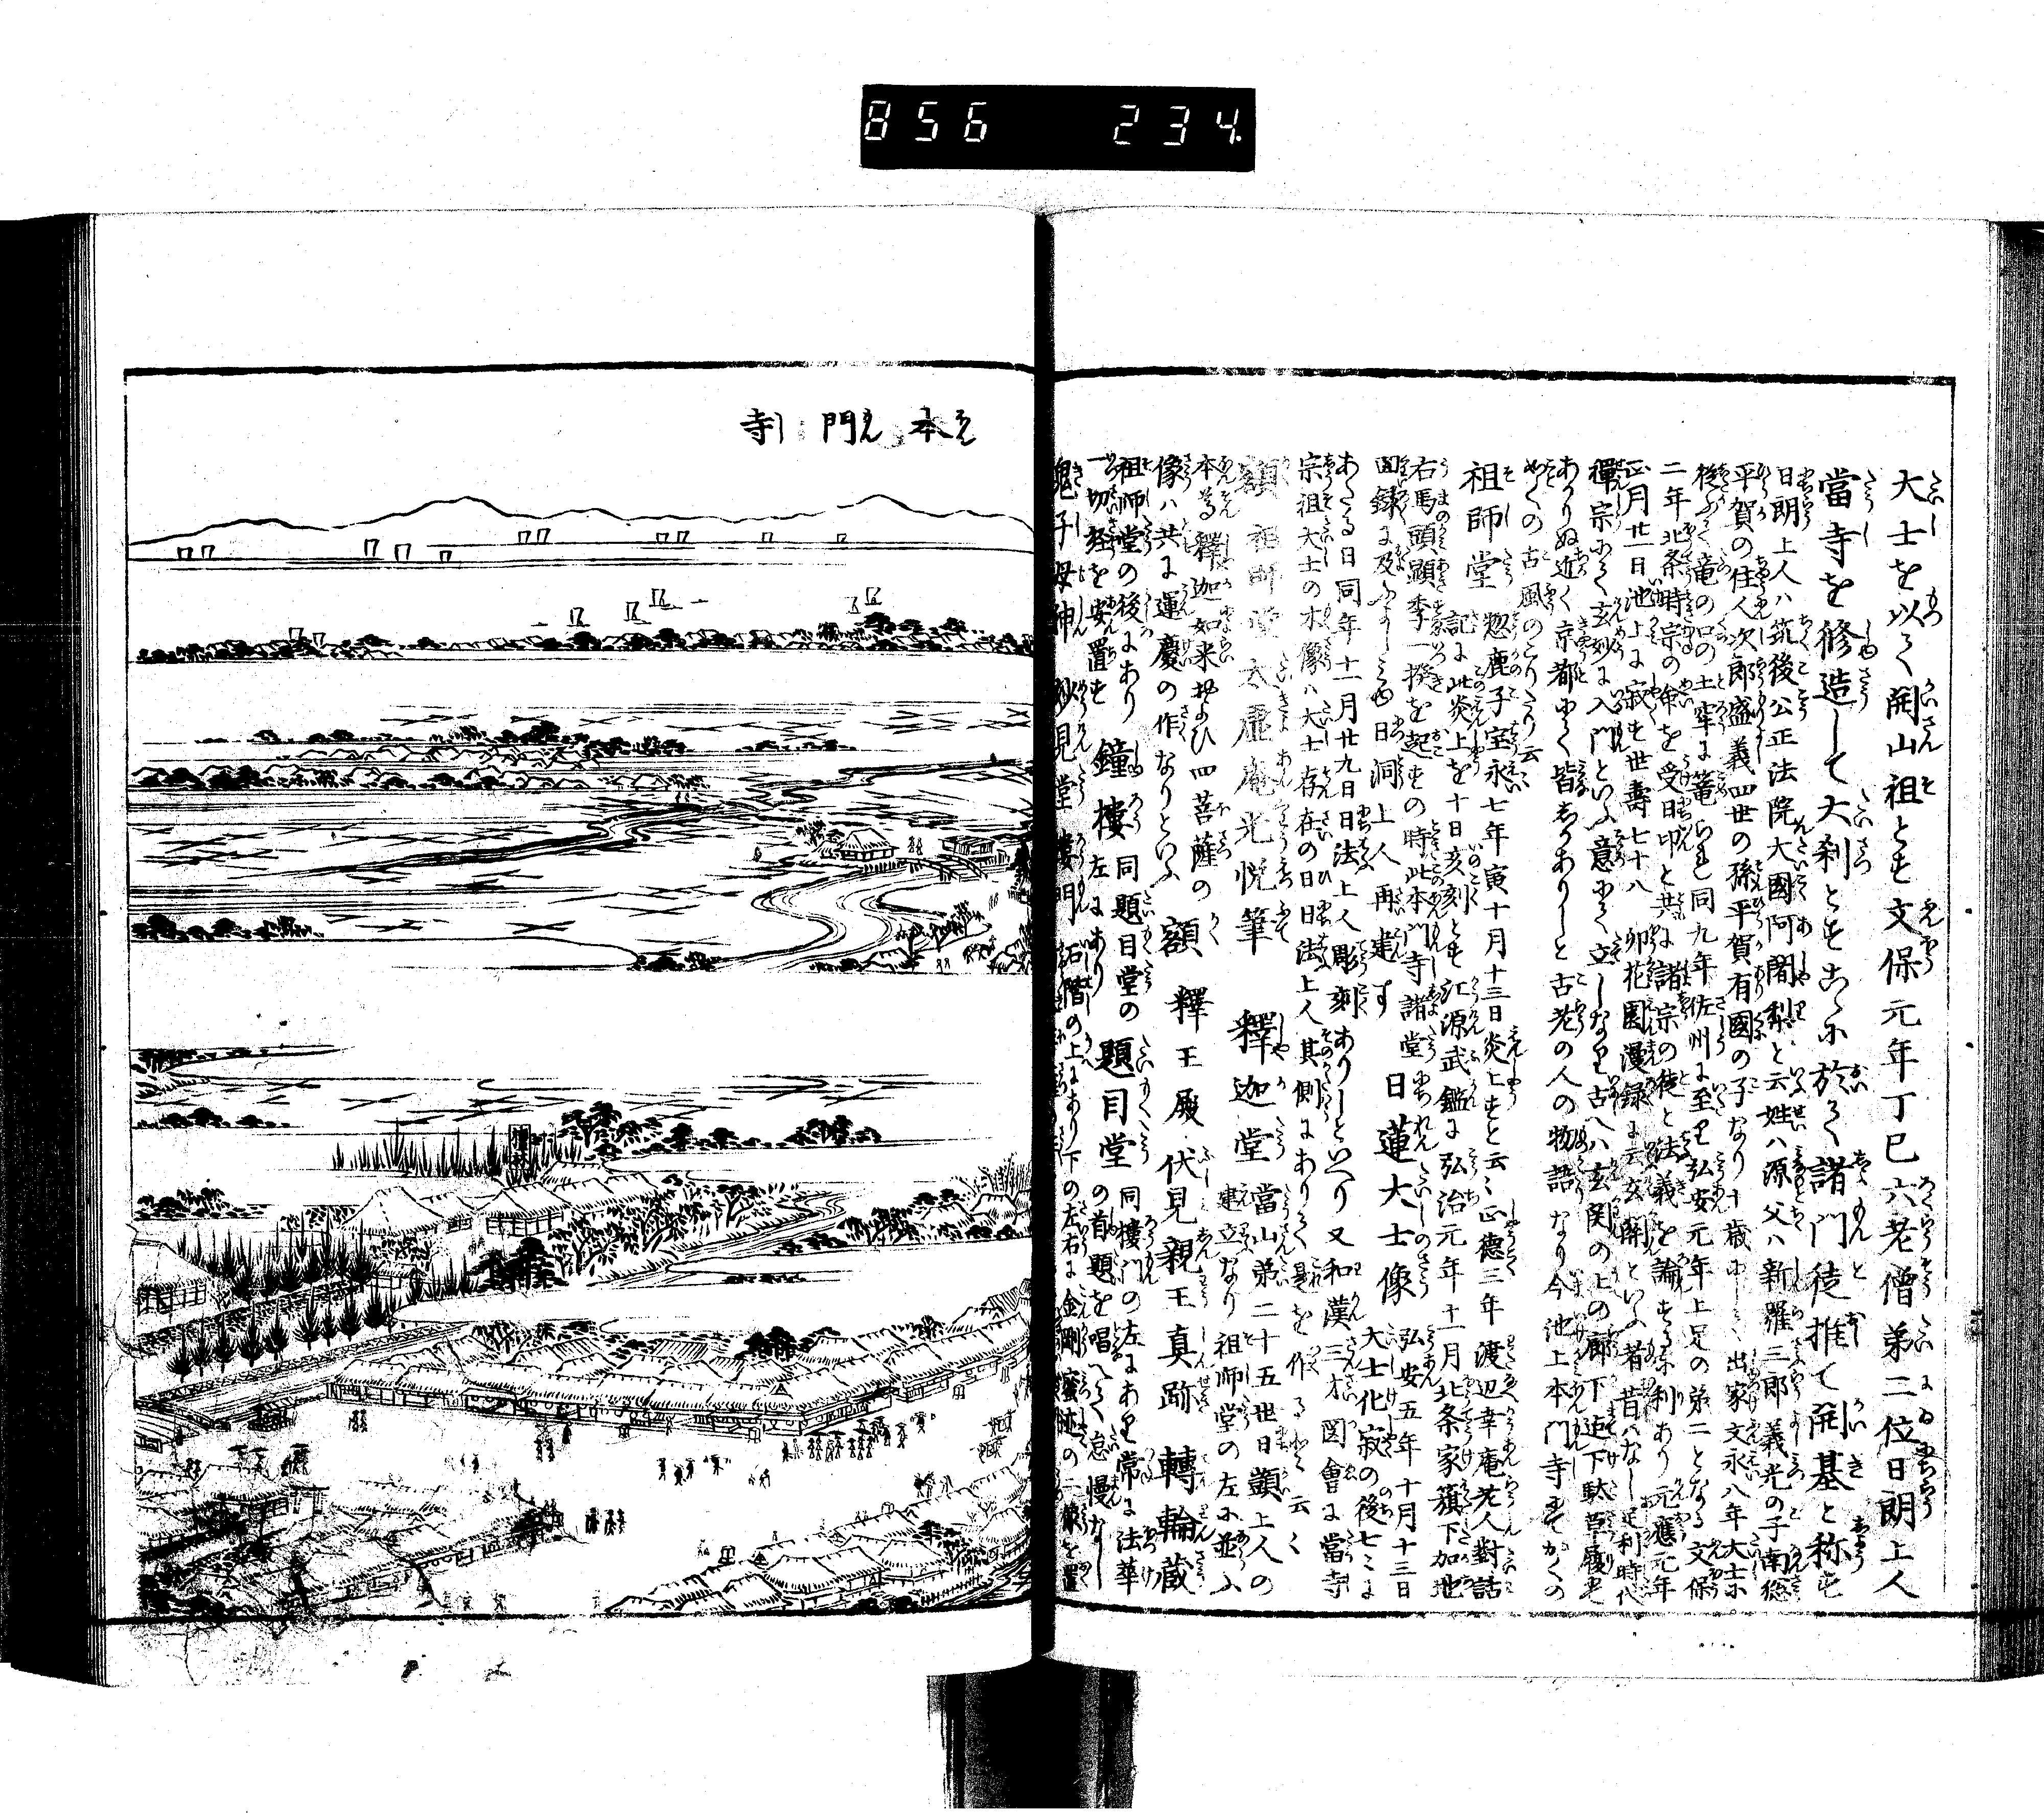 856 234
大士を以て開山祖とす文保元年丁巳六老僧第二位日朗上人
當寺を修造して大刹とすこゝに於て諸門徒推て開基と称す
日朗上人ハ筑後公正法院大國阿闍梨と云姓ハ源父ハ新羅三郎義光の子南總
平賀の住人次郎盛義四世の孫平賀有國の子なり十歳
出家文永八年大士に
後ふく竜の口の土牢に篭られ同九年佐州に至り弘安元年上足の第二となる文保
二年北条時宗の命を受日印と共に諸宗の徒と法義を論するに利あり元應元年
正月廿一日池上に寂す世壽七十八
卯花園漫録に云玄關といふ者昔ハなし足利時代
禅宗にて玄妙に入門といふ意にて立しなり古ヘハ玄関の上の廊下迄下駄草履
ありぬ近く京都にて皆しかありしと古老の人の物語なり今池上本門寺
かくの古風のこりたり云
祖師堂
惣鹿子宝永七年寅十月十三日炎上すと云〻正徳三年渡辺幸庵老人對話
記に此炎上を十日亥刻とす江源武鑑に弘治元年十一月北条家籏下加地
右馬頭顕季一揆を起すの時此本門寺諸堂
回録に及ふよしミゆ日洞上人再建す
日蓮大士像
弘安五年十月十三日
大士化寂の後七〻に
あたる日同年十一月廿九日日法上人彫刻ありしといへり又和漢三才図會に當寺
宗祖大士の木像ハ大士存在の日日法上人其側にありて是を作るなと云〻
額
祖師堂
太虚庵光悦筆
釋迦堂
當山第二十五世日顗上人の
建立なり祖師堂の左に並ふ
本尊釋迦如来およひ四菩薩の
像ハ共に運慶の作なりといふ
額
釋王殿
伏見親王真跡
轉輪藏
祖師堂の後にあり
一切経を安置す
鐘樓
同題目堂の
左にあり
題目堂
同樓門の左にあり常に法華
の首題を唱へて怠慢なし
鬼子母神
妙見堂
樓門
石階の上にあり下の左右に金剛密迹の二像を置
本門寺